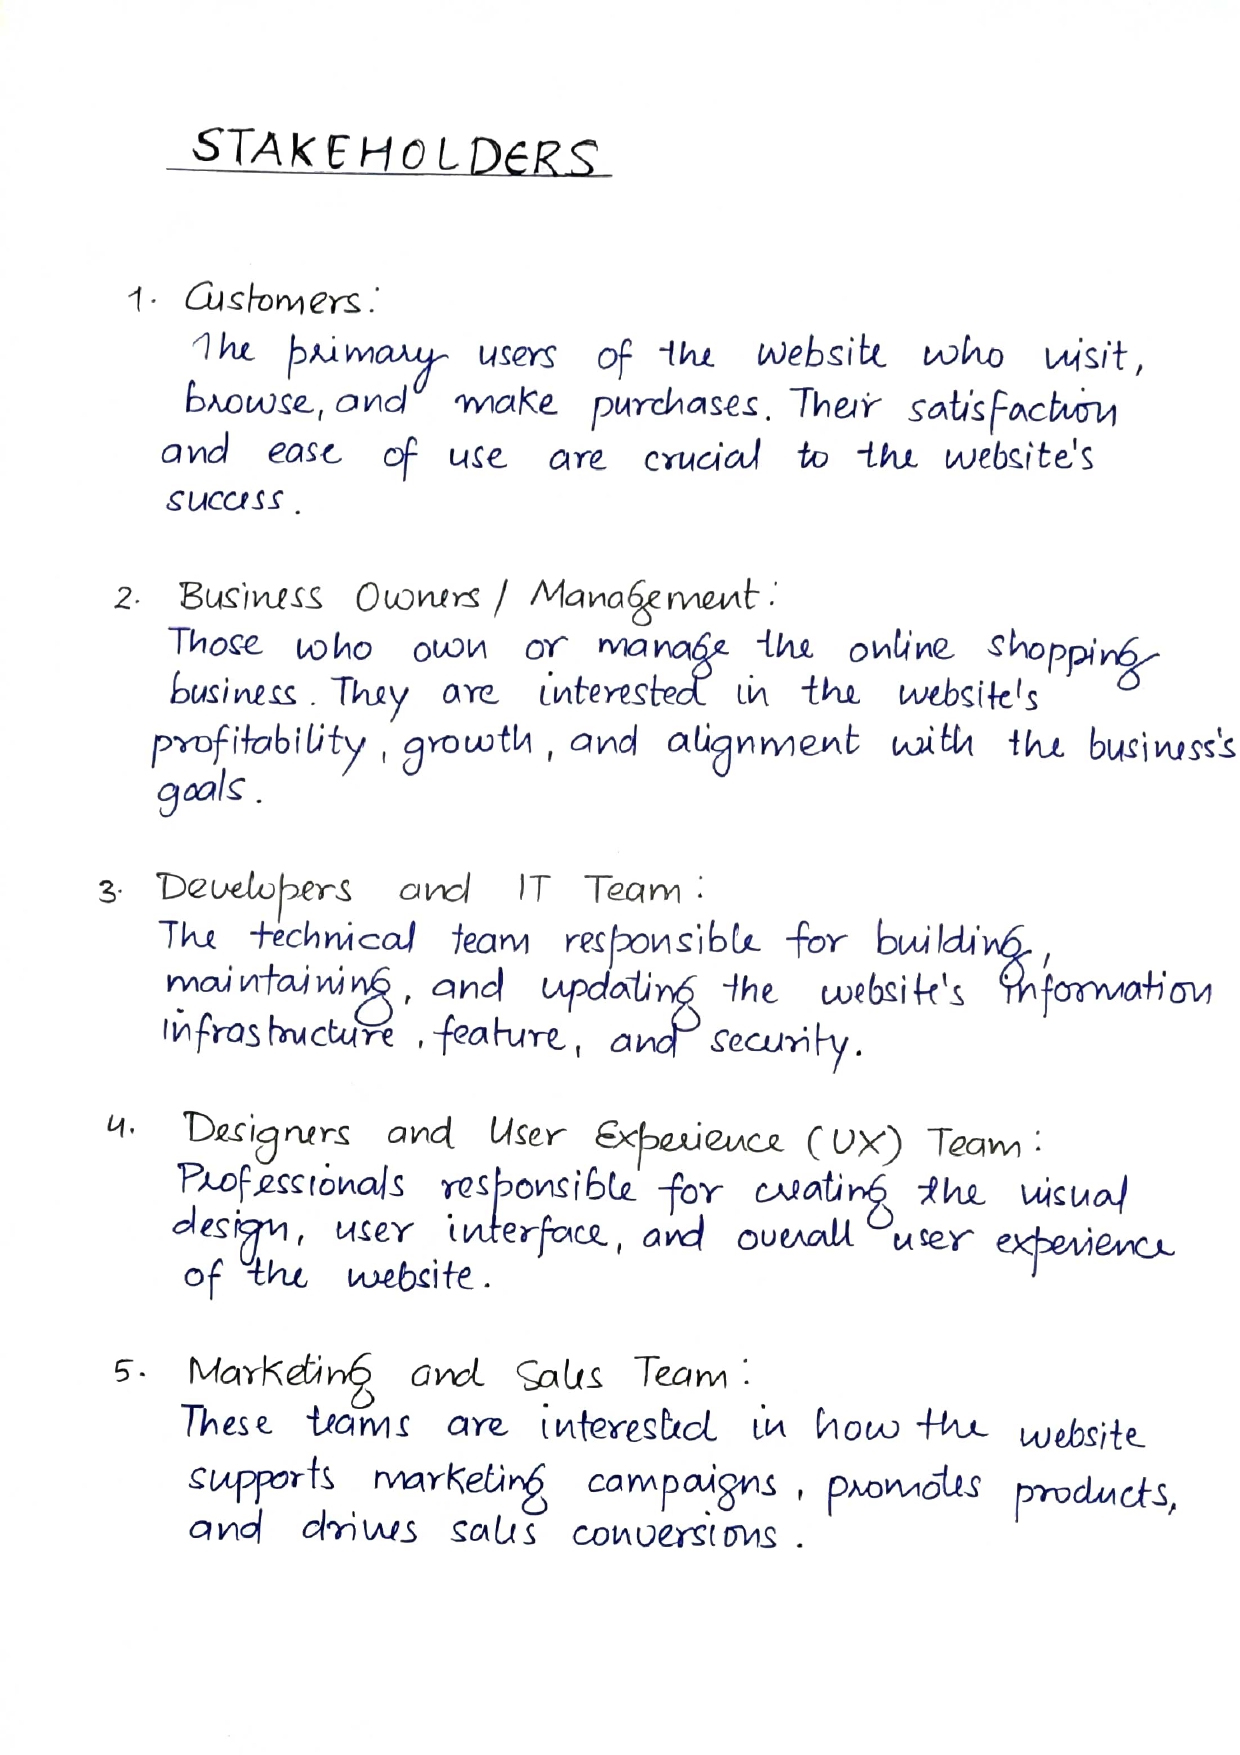 STAKEHOLDERS
1. Customers:
The primary users of the website who visit,
browse, and make purchases. Their satisfaction
and ease of use are crucial to the website's
success.
2. Business Owners / Management:
Those who own or manage the online shopping
business. They are interested in the website's
profitability, growth, and alignment with the business's
goals.
3. Developers and IT Team:
The technical team responsible for building,
maintaining, and updating the website's information
infrastructure, feature, and security.
4. Designers and User Experience (UX) Team:
Professionals responsible for creating the visual
design, user interface, and overall user experience
of the website.
5. Marketing and Sales Team:
These teams are interested in how the website
supports marketing campaigns, promotes products,
and drives sales conversions.